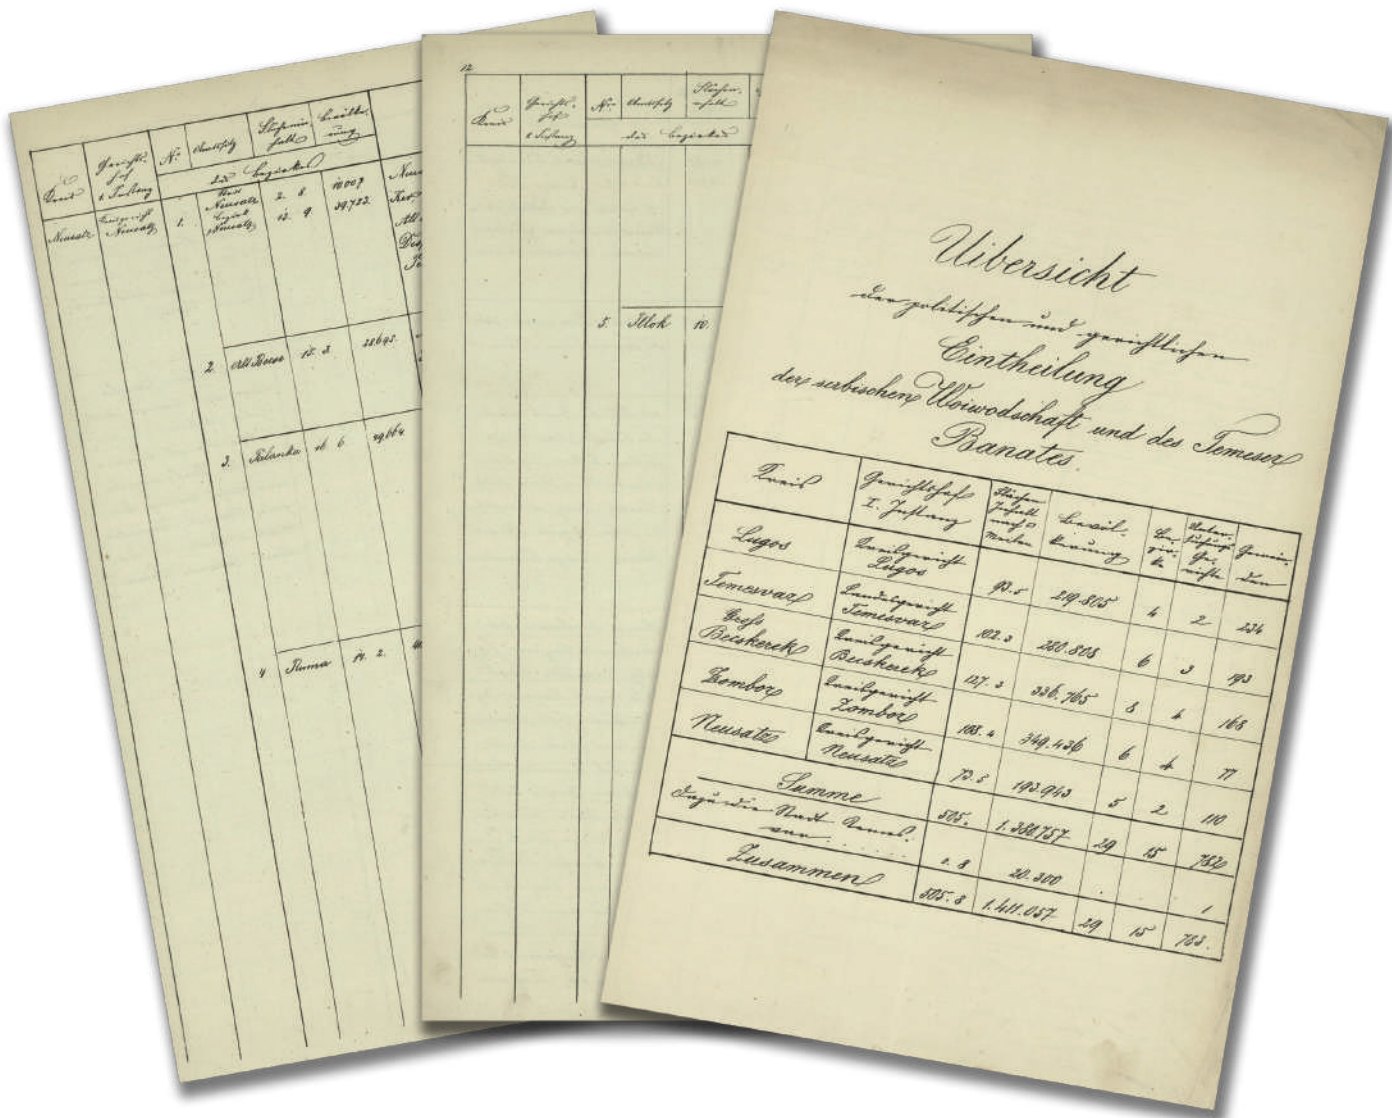 Kreis
Gerichts-
hof
I. Instanz
Nr.
Amtssitz
Flächenin-
halt
Bevölke-
rung
des Bezirkes
Neusatz
Kreisgericht
Neusatz
1.
Stadt
Neusatz
Bezirk
Neusatz
2. 8
13. 9.
10007
39,723.
2.
Alt Becse
15. 3.
28645.
3.
Palanka
16. 6
29,664
4
Ruma
14. 2.
12
Kreis
Gerichts-
hof
I. Instanz
Nr.
Amtssitz
Flächen-
inhalt
des Bezirkes
5.
Illok
10.
Uibersicht
der politischen und gerichtlichen
Eintheilung
der serbischen Woiwodschaft und des Temeser
Banates.
Kreis
Gerichtshof
I. Instanz
Flächen
Inhalt
nach
Meilen
Bevöl-
kerung
Be-
zir-
ke
Unter-
suchungs
Ge-
richte
Gemein-
den
Lugos
Kreisgericht
Lugos
93.5
219.805
4
2
234
Temesvar
Landesgericht
Temesvar
102.3
280.808
6
3
193
Gross
Becskerek
Kreisgericht
Becskerek
127.3
336.765
8
4
168
Zombor
Kreisgericht
Zombor
108.4
349.436
6
4
77
Neusatz
Kreisgericht
Neusatz
73.5
193.943
5
2
110
Summe
505.
1.380757
29
15
782
Dazu die Stadt Temes-
var . . . . .
0.8
20.300
.
.
1
Zusammen
505.8
1.411.057
29
15
783.